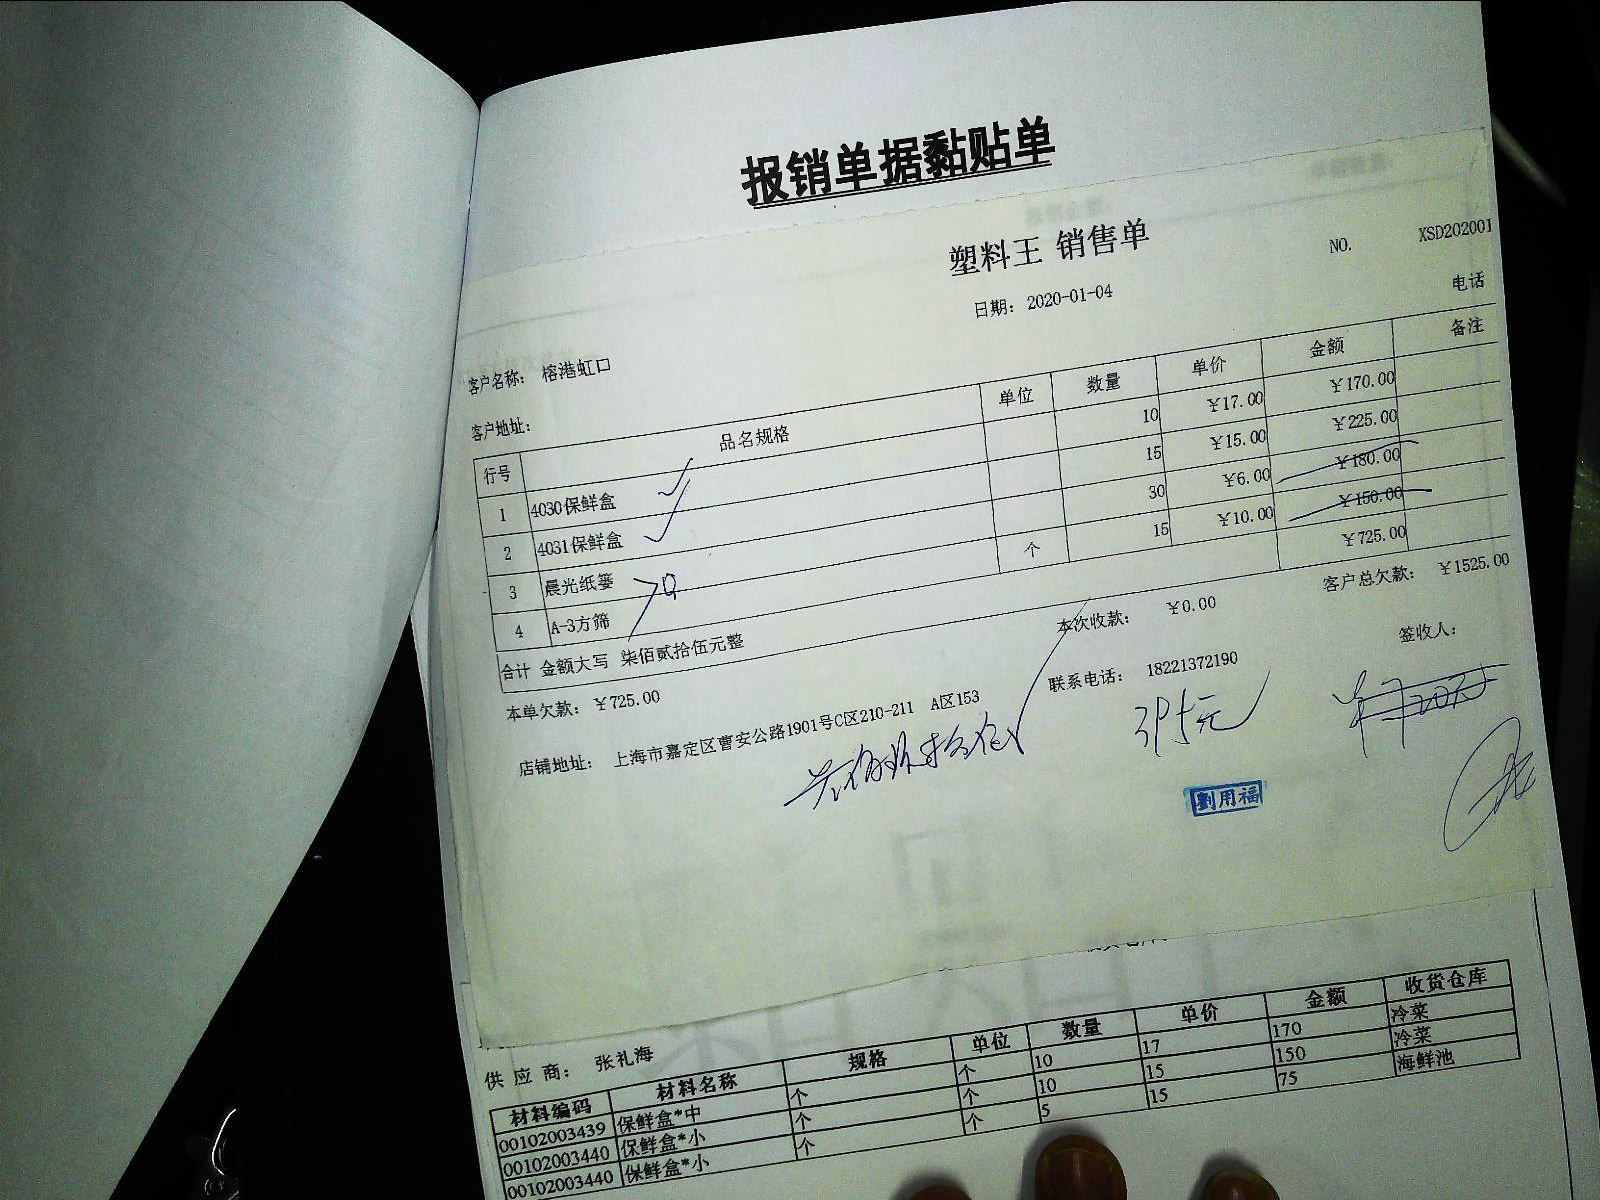 报销单据黏贴单
塑料王 销售单
NO. XSD202001
日期: 2020-01-04
电话
客户名称: 榕港虹口
客户地址:
行号 品名规格 单位 数量 单价 金额 备注
1 4030保鲜盒 10 ¥17.00 ¥170.00
2 4031保鲜盒 15 ¥15.00 ¥225.00
3 晨光纸篓 30 ¥6.00 ¥180.00
4 A-3方筛 个 15 ¥10.00 ¥150.00
合计 金额大写 柒佰贰拾伍元整 ¥725.00
本单欠款: ¥725.00 本次收款: ¥0.00 客户总欠款: ¥1525.00
店铺地址: 上海市嘉定区曹安公路1901号C区210-211 A区153 联系电话: 18221372190 签收人:
395元
劉用福
供应商: 张礼海
材料编码 材料名称 规格 单位 数量 单价 金额 收货仓库
00102003439 保鲜盒*中 个 个 10 17 170 冷菜
00102003440 保鲜盒*小 个 个 10 15 150 冷菜
00102003440 保鲜盒*小 个 个 5 15 75 海鲜池